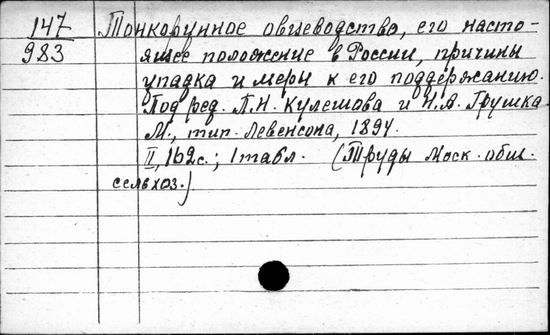 147
983
Тонкорунное овцеводство, его насто-
ящее положение в России, причины
упадка и меры к его поддержанию.
Под ред. П.Н. Кулешова и Н.А. Грушка
М., тип. Левенсона, 1894.
II, 162с.; 1 табл. (Труды Моск. общ.
сельхоз.)